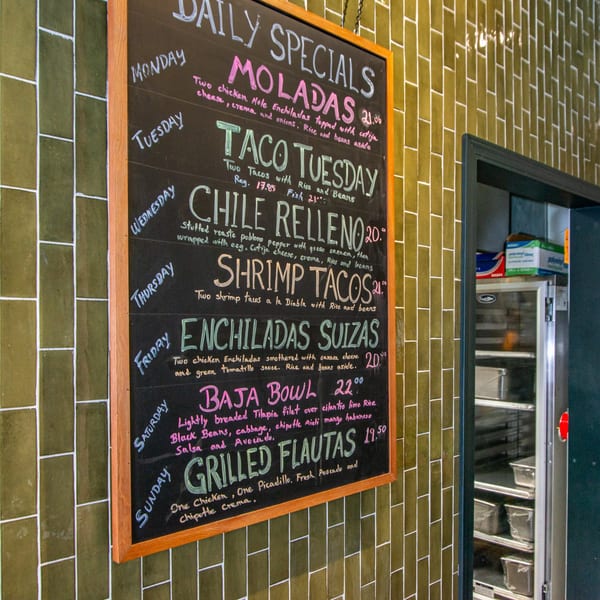 DAILY SPECIALS
MONDAY
MOLADAS
Two chicken Mole Enchiladas topped with cotija
cheese, crema and onions. Rice and beans aside
TUESDAY
TACO TUESDAY
Two Tacos with Rice and Beans
Reg. 17.95 Fish
WEDNESDAY
CHILE RELLENO 20.
Stuffed roasts poblano pepper with queso, then
wrapped with egg. Cotija cheese, crema, Rice and beans
THURSDAY
SHRIMP TACOS
Two shrimp tacos a la Diabla with Rice and beans
FRIDAY
ENCHILADAS SUIZAS
Two chicken Enchiladas smothered with cheese
and green tomatillo sauce. Rice and beans aside.
SATURDAY
BAJA BOWL 22.00
Lightly breaded Tilapia filet over cilantro lime Rice
Black Beans, cabbage, chipotle aioli mango habanero
Salsa and Avocado. 19.50
SUNDAY
GRILLED FLAUTAS
One Chicken, One Picadillo. Fresh Avocado and
chipotle crema.